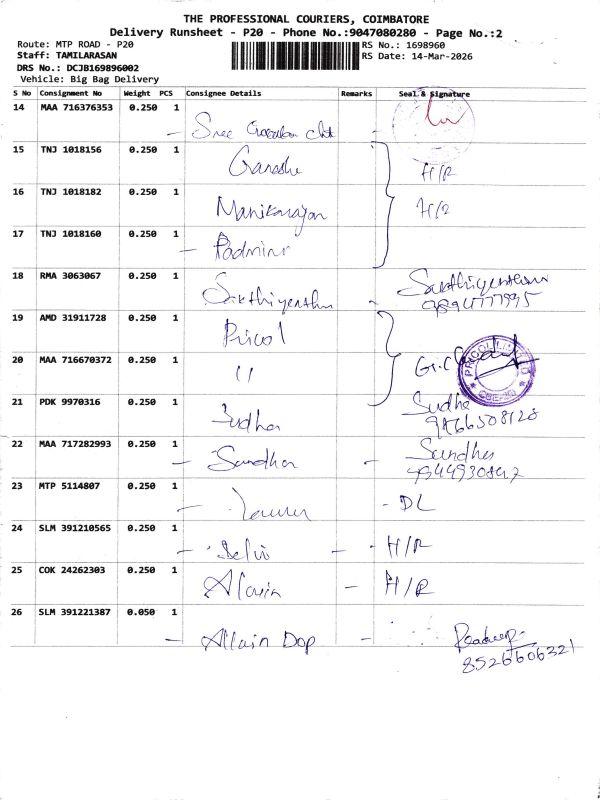 THE PROFESSIONAL COURIERS, COIMBATORE
Delivery Runsheet - P20 - Phone No.:9047080280 - Page No.:2
Route: MTP ROAD - P20
Staff: TAMILARASAN
DRS No.: DCJB169896002
Vehicle: Big Bag Delivery
RS No.: 1698960
RS Date: 14-Mar-2026
S No Consignment No Weight PCS Consignee Details Remarks Seal & Signature
14 MAA 716376353 0.250 1
Sree
15 TNJ 1018156 0.250 1
Ganesh H/R
16 TNJ 1018182 0.250 1
Manikarajan H/R
17 TNJ 1018160 0.250 1
Padmini
18 RMA 3063067 0.250 1
Sakthiyenthra Sakthiyenthra
9894777995
19 AMD 31911728 0.250 1
Pricol
20 MAA 716670372 0.250 1
11
PRICOL LIMITED
21 PDK 9970316 0.250 1
Sudha Sudha
22 MAA 717282993 0.250 1
Sandha Sandha
23 MTP 5114807 0.250 1
- DL
24 SLM 391210565 0.250 1
- Selvi - - H/R
25 COK 24262303 0.250 1
Alavin - H/R
26 SLM 391221387 0.050 1
- Allain Dop - Pradeep
8526606321